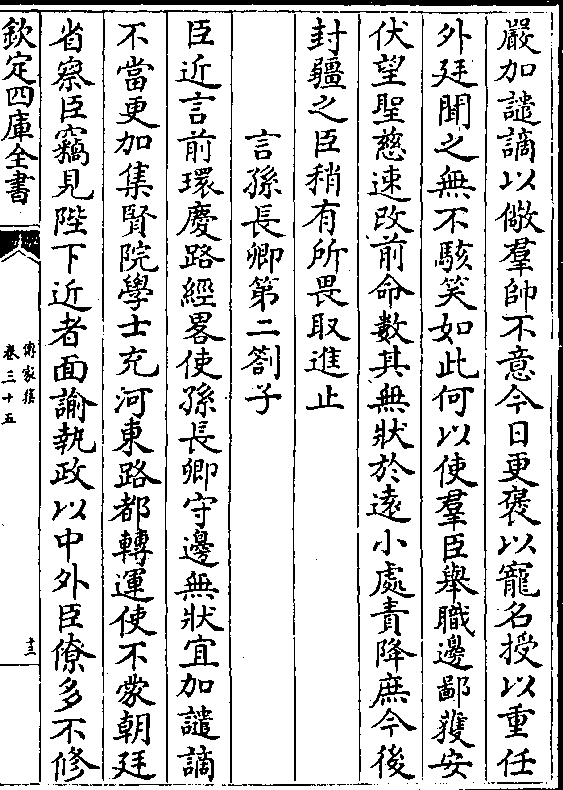 嚴加譴謫以儆羣帥不意今日更褒以寵名授以重任
外廷聞之無不駭笑如此何以使羣臣舉職邊鄙獲安
伏望聖慈速改前命數其無狀於逺小處責降庶今後
封疆之臣稍有所畏取進止
言孫長卿第二劄子
臣近言前環慶路經畧使孫長卿守邊無狀宜加譴謫
不當更加集賢院學士充河東路都轉運使不蒙朝廷
省察臣竊見陛下近者面諭執政以中外臣僚多不修
欽定四庫全書
傳家集
卷三十五
十三